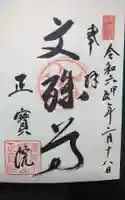 令和六甲辰年 月十八日
奉拝
文殊尊
正寶院